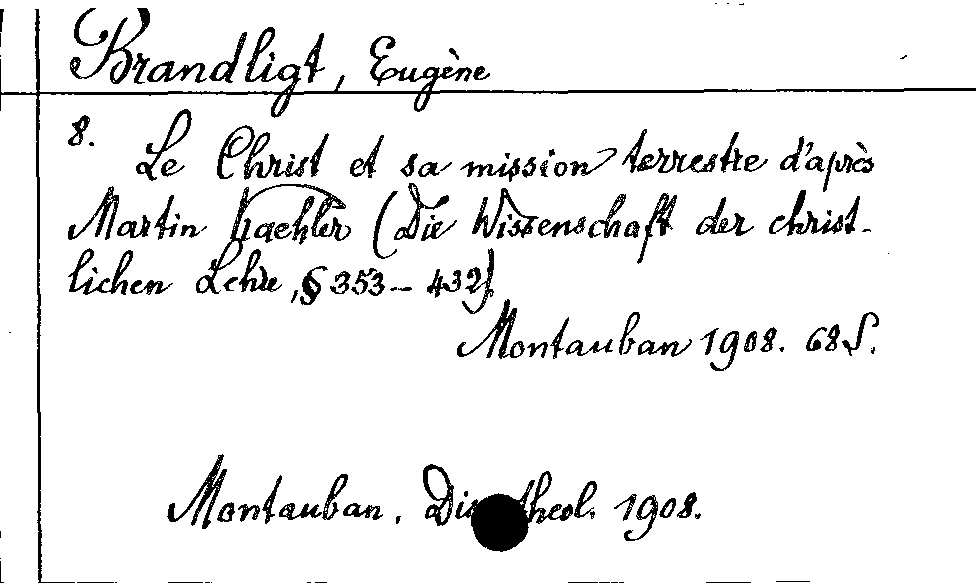 Brandligt, Eugène
8.
Le Christ et sa mission terrestre d'après
Martin Kaehler (Die Wissenschaft der christ-
lichen Lehre, § 353-432)
Montauban 1908. 68 S.
Montauban. Dis theol. 1908.